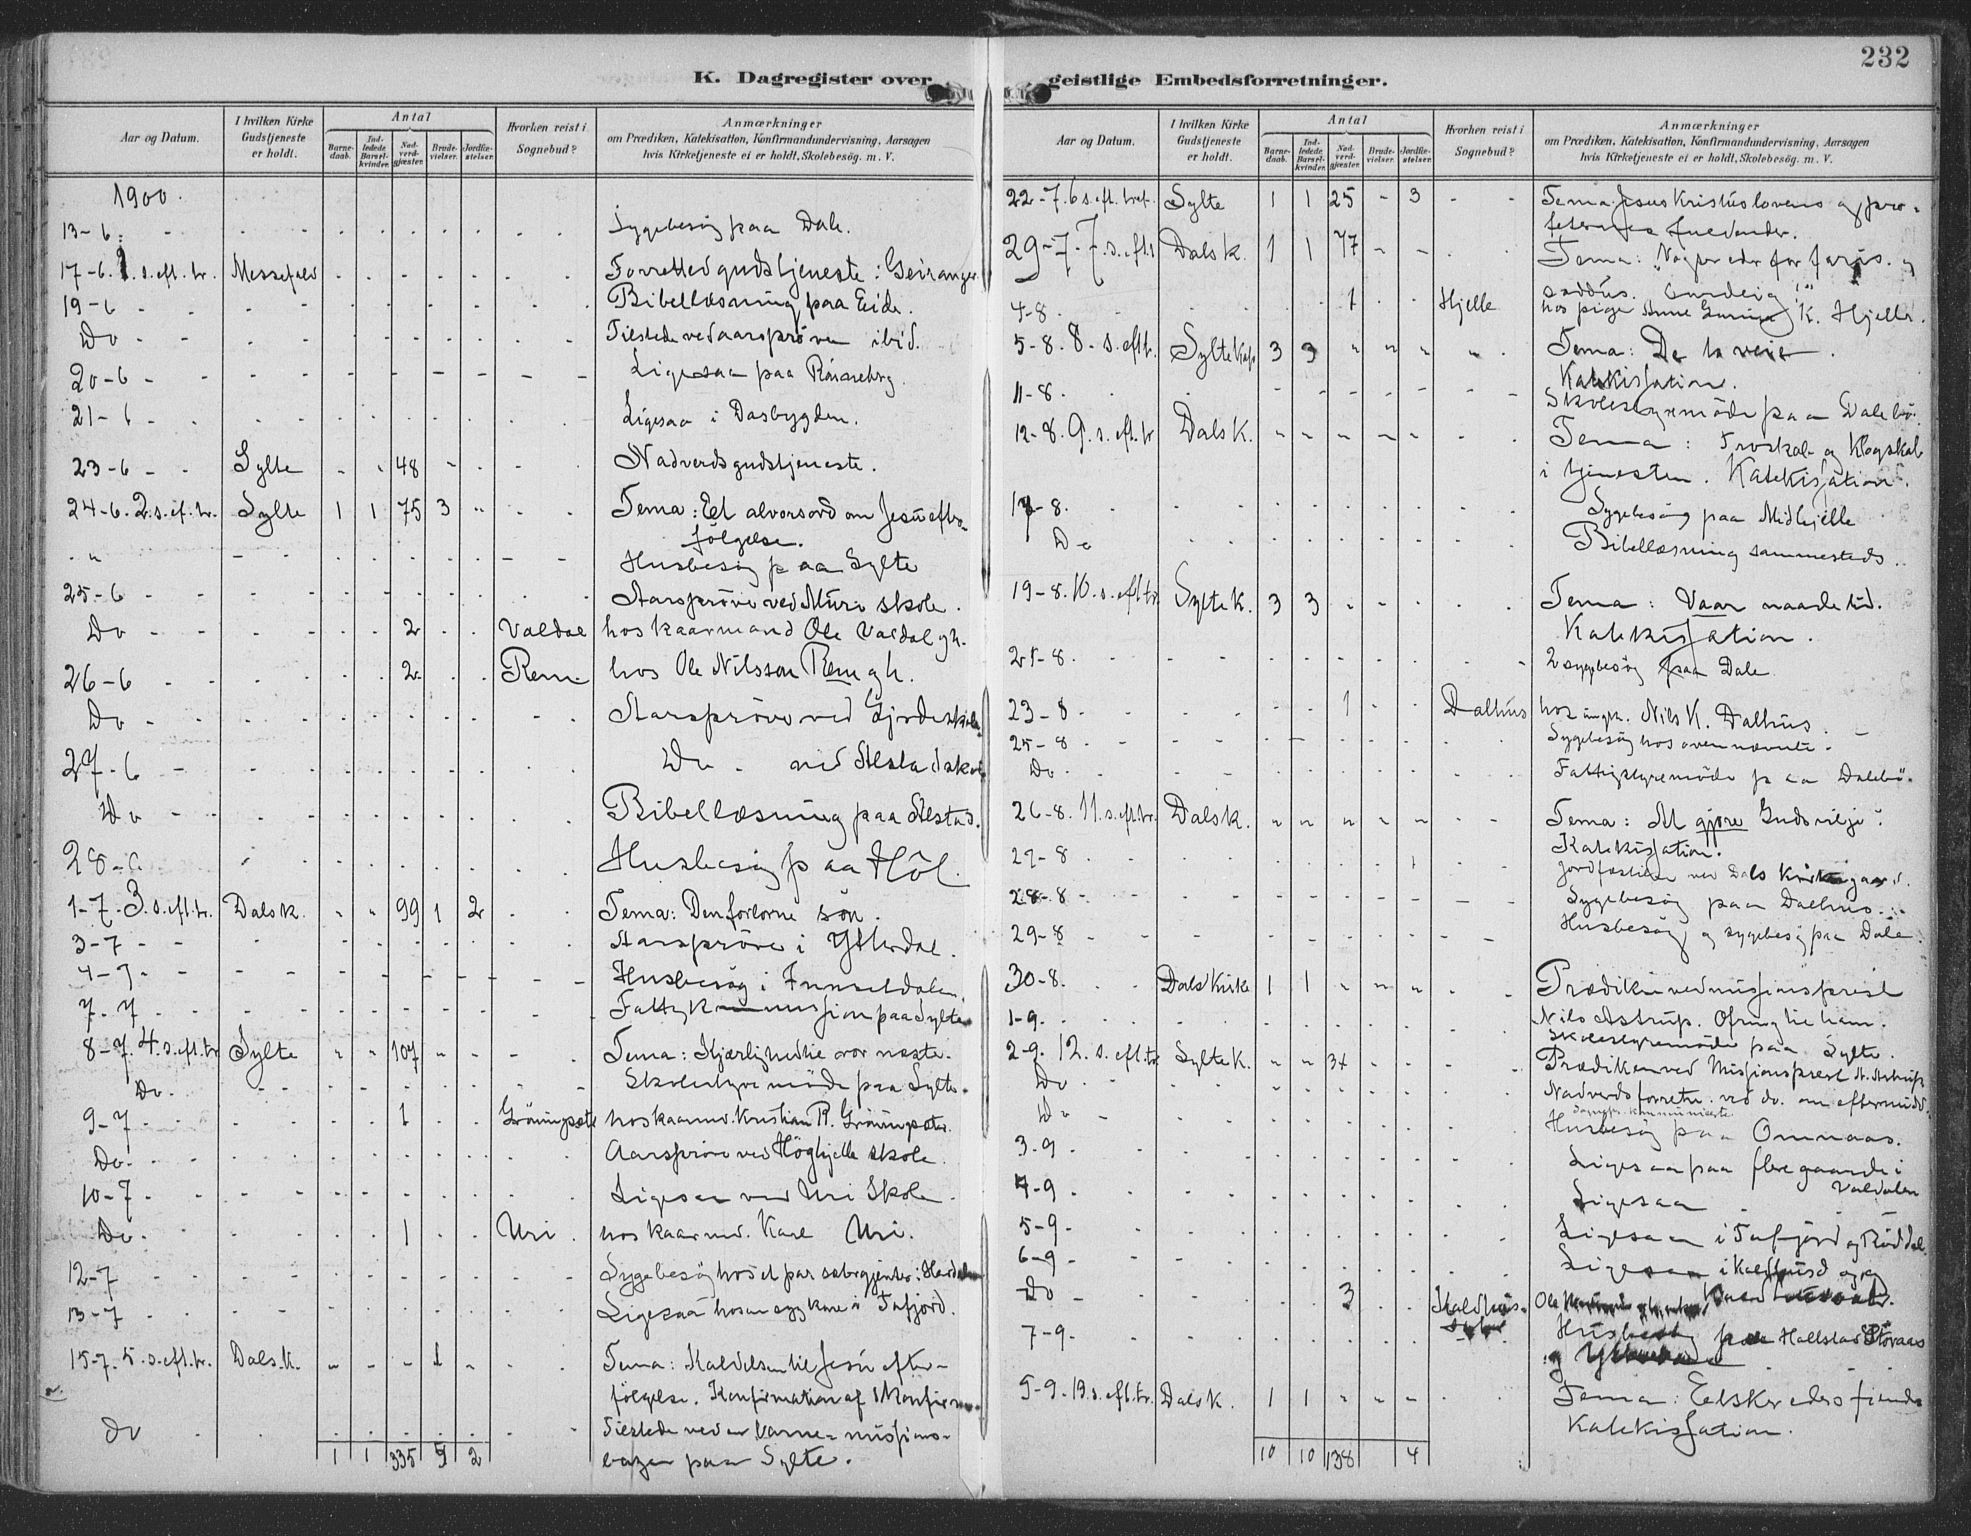 232
K. Dagregister over
Aar og Datum.
I hvilken Kirke Gudstjeneste er holdt.
Antal
Barnedaab.
Indledede Barselkvinder.
Nadverdgjæster.
Brudevielser.
Jordfæstelser.
Hvorhen reist i Sognebud?
Anmærkninger
om Prædiken, Katekisation, Konfirmandundervisning, Aarsagen
hvis Kirketjeneste ei er holdt, Skolebesøg. m. V.
1900.
13-6. Sygebesög paa Dale.
17-6. 1. s. eft. tr. Messefald Forretted gudstjeneste i Geiranger
19-6 Bibellæsning paa Eide.
Do Tilstede ved aarspröven ibid.
20-6 Ligesaa paa
21-6 Ligesaa i Dasbygden.
23-6 Sylte 48 Nadverdsgudstjeneste.
24-6. 2. s. ef. tr. Sylte 1 1 75 3 Tema: Et alvorsord om Jesu efter-
fölgelse.
Husbesög paa Sylte
25-6 Aarspröve ved Muri skole.
Do 2 Valdal hos kaarmand Ole Valdal gh.
26-6 2 Rem hos Ole Nilsson Rem gh.
Do Aarspröve ved Gjerdeskole
27-6 Do ved Alstadskole
Do Bibellæsning paa Alstad.
28-6 Husbesög paa Höl.
1-7. 3. s. eft. tr. Dals k. 99 1 2 Tema: Den forlorne sön.
3-7 Aarspröve i Ytterdal.
4-7 Husbesög i
7-7 Fattigkommission paa Sylte
8-7. 4. s. eft. tr Sylte 107 Tema: Kjærlighed til vor næste.
Do. Skolestyremöde paa Sylte.
9-7 1 Gröningsæter hos kaarmd. Kristian R. Gröningsæter.
Do. Aarspröve ved Höghjelle skole
10-7 Ligesaa ved Uri Skole
Do. 1 Uri hos kaarmd. Karl Uri.
12-7 Sygebesög hos et par
13-7 Ligesaa hos en syg kone i Tafjord.
15-7. 5. s. eft. tr. Dals. k. 1 Tema: Kaldelsen til Jesu efter-
fölgelse. Konfirmation af 1 Konfirm
Do Tilstede ved en Varme- missions-
bazar paa Sylte.
1 1 335 5 2
geistlige Embedsforretninger.
Aar og Datum.
I hvilken Kirke Gudstjeneste er holdt.
Antal
Barnedaab.
Indledede Barselkvinder.
Nadverdgjæster.
Brudevielser.
Jordfæstelser.
Hvorhen reist i Sognebud?
Anmærkninger
om Prædiken, Katekisation, Konfirmandundervisning, Aarsagen
hvis Kirketjeneste ei er holdt, Skolebesøg. m. V.
22-7. 6 s. eft. tref. Sylte 1 1 25 3 Tema: Jesus Kristus lovens og pro-
feternes fuldender.
29-7. 7. s. eft. Dals k. 1 1 77 Tema: "Vogter eder for faris. og
saddus. surdeig!"
4-8 1 Hjelle hos pige K. Hjelle.
5-8. 8. s. eft. tr. Sylte Kap 3 3 Tema: De to veie.
Katekisation.
11-8 Skolestyremöde paa Dalebö.
12-8. 9. s. eft. tr Dals K. Tema: Troskab og Klogskab
i tjenesten. Katekisation.
17-8. Sygebesög paa Midhjelle
Do Bibellæsning sammesteds.
19-8. 10. s. eft. tr. Sylte K. 3 3 Tema: Vaar naadetid.
Katekisation.
21-8. 2 sygebesög paa Dale
23-8 1 Dalhus hos ungk. Nils K. Dalhus.
25-8 Sygebesög hos ovennævnte.
Do Fattigstyremöde paa Dalebö.
26-8. 11. s. eft. tr. Dals k. Tema: At gjöre Guds vilje.
Katekisation.
27-8 1 Jordfæstelse ved Dals kirkegaard.
28-8 Sygebesög paa Dalhus.
29-8 Husbesög og sygebesög paa Dale.
30-8. Dals Kirke 1 1 Prædiken ved missionsprest
Nils Astrup. Ofring til ham.
1-9. Skolestyremöde paa Sylte.
2-9. 12. s. eft. tr Sylte K. 34 Prædiken ved Missionsprest N. Astrup
Do Nadverdsforretn. ved do. om eftermidd.
Do Husbesög paa Omnaas.
3-9 Ligesaa paa flere gaarde i
Valdalen
4-9 Ligesaa
5-9 Ligesaa i Tafjord og Röddal
6-9 Ligesaa i Kaldhusd
Do 3 Kaldhus- Ole
7-9. Husbesög paa Hallstad Storaas
og
9-9. 13. s. eft. tr. Dals k. 1 1 Tema: Elsker eders fiender
Katekisation.
10 10 138 4